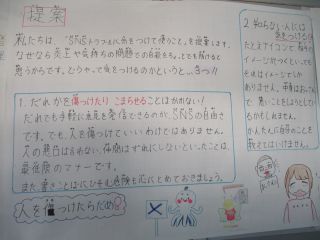 提案
私たちは、"SNSトラブルに気をつけて使うこと"を提案します。
なぜなら炎上や気持ちの問題で
思うからです。どうやって気をつけるのかというと、3つ!!
1. だれかを傷つけたりこまらせることはかかない!
だれでも手軽に意見を発信できるのが、SNSの自由さ
です。でも、人を傷つけていいわけではありません。
人の悪口は言わない、体制はずれにしないといったことは、
最低限のマナーです。
また、書きこみにひそむ危険も心にとめておきましょう。
人を傷つけたらだめ
2. 知らない人には
気をつける
たとえアイコンで相手の
イメージがつくといっても
それはイメージでしか
ありません。
で、悪いことをしようとしている
かもしれません。
かんたんに自分のことを
教えてはいけません。